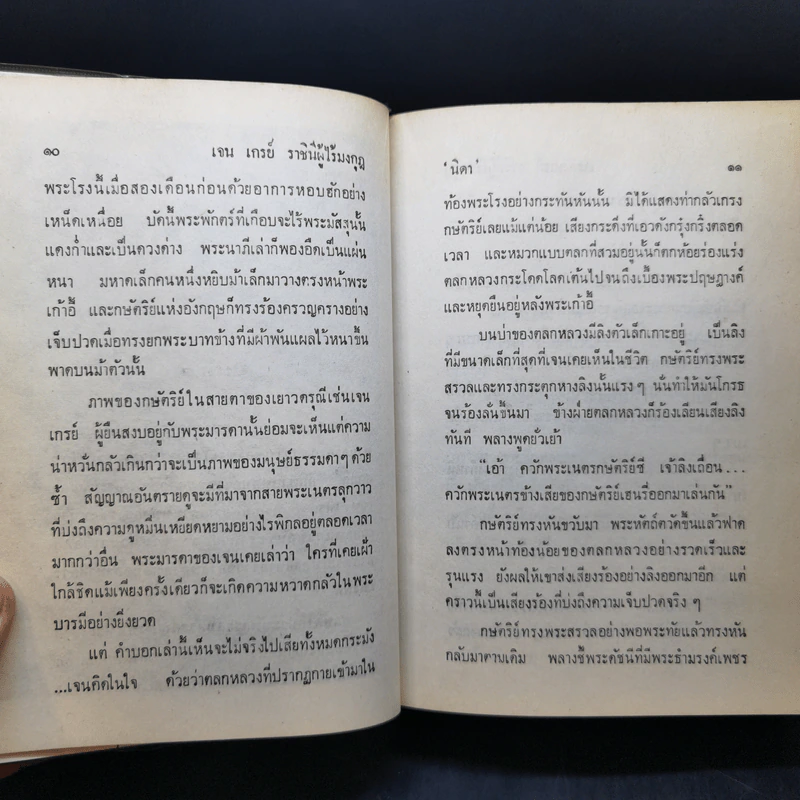 ๑๐ เจน เกรย์ ราชินีผู้ไร้มงกุฎ
พระโรงนี้เมื่อสองเดือนก่อนด้วยอาการหอบฮักอย่าง
เหน็ดเหนื่อย บัดนี้พระพักตร์ที่เกือบจะไร้พระมัสสุนั้น
แดงก่ำและเป็นดวงด่าง พระนาภีเล่าก็พองอืดเป็นแผ่น
หนา มหาดเล็กคนหนึ่งหยิบม้าเล็กมาวางตรงหน้าพระ
เก้าอี้ และกษัตริย์แห่งอังกฤษก็ทรงร้องครวญครางอย่าง
เจ็บปวดเมื่อทรงยกพระบาทข้างที่มีผ้าพันแผลไว้หนาขึ้น
พาดบนม้าตัวนั้น
ภาพของกษัตริย์ในสายตาของเยาวดรุณีเช่นเจน
เกรย์ ผู้ยืนสงบอยู่กับพระมารดานั้นย่อมจะเห็นแต่ความ
น่าหวั่นกลัวเกินกว่าจะเป็นภาพของมนุษย์ธรรมดาๆ ด้วย
ซ้ำ สัญญาณอันตรายดูจะมีที่มาจากสายพระเนตรลุกวาว
ที่บ่งถึงความดูหมิ่นเหยียดหยามอย่างไรพิกลอยู่ตลอดเวลา
มากกว่าอื่น พระมารดาของเจนเคยเล่าว่า ใครที่เคยเฝ้า
ใกล้ชิดแม้เพียงครั้งเดียวก็จะเกิดความหวาดกลัวในพระ
บารมีอย่างยิ่งยวด
แต่ คำบอกเล่านี้เห็นจะไม่จริงไปเสียทั้งหมดกระมัง
...เจนคิดในใจ ด้วยว่าตลกหลวงที่ปรากฏกายเข้ามาใน
'นิดา' ๑๑
ท้องพระโรงอย่างกระทันหันนั้น มิได้แสดงท่ากลัวเกรง
กษัตริย์เลยแม้แต่น้อย เสียงกระดิ่งที่เอวดังกรุ๋งกริ๋งตลอด
เวลา และหมวกแบบตลกที่สวมอยู่นั้นก็ตกห้อยร่องแร่ง
ตลกหลวงกระโดดโลดเต้นไปจนถึงเบื้องพระปฤษฎางค์
และหยุดยืนอยู่หลังพระเก้าอี้
บนบ่าของตลกหลวงมีลิงตัวเล็กเกาะอยู่ เป็นลิง
ที่มีขนาดเล็กที่สุดที่เจนเคยเห็นในชีวิต กษัตริย์ทรงพระ
สรวลและทรงกระตุกหางลิงนั้นแรงๆ นั่นทำให้มันโกรธ
จนร้องลั่นขึ้นมา ข้างฝ่ายตลกหลวงก็ร้องเลียนเสียงลิง
ทันที พลางพูดยั่วเย้า
"เอ้า ควักพระเนตรกษัตริย์ซี เจ้าลิงเถื่อน...
ควักพระเนตรข้างเสียของกษัตริย์เฮนรี่ออกมาเล่นกัน"
กษัตริย์ทรงหันขวับมา พระหัตถ์ตวัดขึ้นแล้วฟาด
ลงตรงหน้าท้องน้อยของตลกหลวงอย่างรวดเร็วและ
รุนแรง ยังผลให้เขาส่งเสียงร้องอย่างลิงออกมาอีก แต่
คราวนี้เป็นเสียงร้องที่บ่งถึงความเจ็บปวดจริงๆ
กษัตริย์ทรงพระสรวลอย่างพอพระทัยแล้วทรงหัน
กลับมาตามเดิม พลางชี้พระดัชนีที่มีพระธำมรงค์เพชร